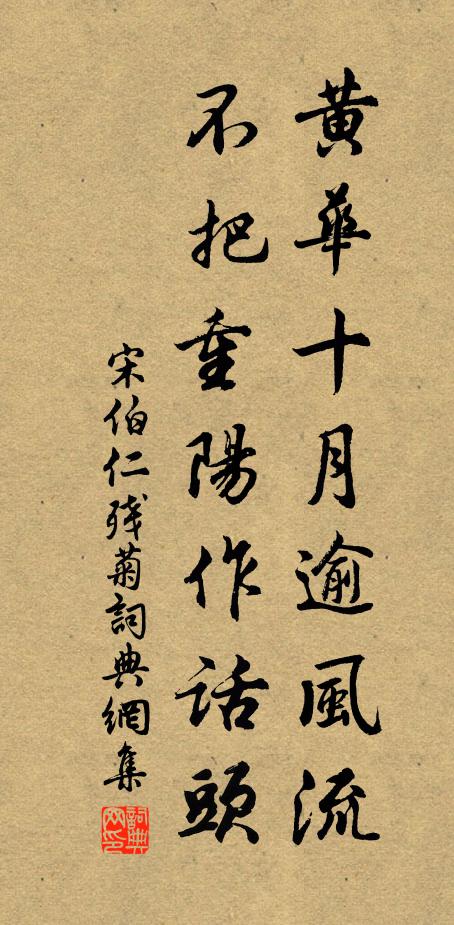 黄華十月逾風流
不把重陽作話頭
宋伯仁殘菊詞典網集
詞典網印